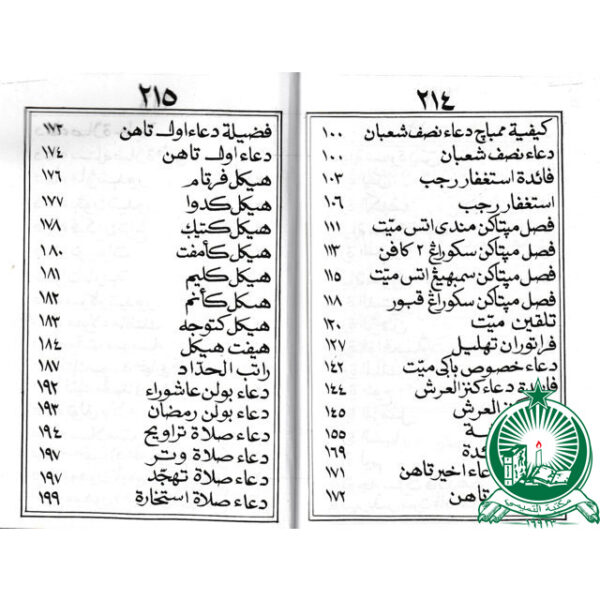 ٢١٤
كيفية ممباچ دعاء نصف شعبان ١٠٠
دعاء نصف شعبان ١٠٠
فائدة استغفار رجب ١٠٣
استغفار رجب ١٠٦
فصل مپتاكن مندي اتس ميّت ١١١
فصل مپتاكن سكوراڠ ٢ كافن ١١٣
فصل مپتاكن سمبهيڠ اتس ميّت ١١٥
فصل مپتاكن سكوراڠ قبور ١١٨
تلقين ميّت ١٢٠
فراتوران تهليل ١٢٧
دعاء خصوص باكي ميّت ١٤٢
فائدة دعاء كنز العرش ١٤٤
كنز العرش ١٤٥
١٥٥
١٦٩
دعاء اخير تاهن ١٧١
تاهن ١٧٢
٢١٥
فضيلة دعاء اول تاهن ١٧٣
دعاء اول تاهن ١٧٤
هيكل فرتام ١٧٦
هيكل كدوا ١٧٧
هيكل كتيك ١٧٨
هيكل كأمفت ١٨٠
هيكل كليم ١٨١
هيكل كأنم ١٨٢
هيكل كتوجه ١٨٣
هيفت هيكل ١٨٤
راتب الحدّاد ١٨٧
دعاء بولن عاشوراء ١٩٢
دعاء بولن رمضان ١٩٣
دعاء صلاة تراويح ١٩٤
دعاء صلاة وتر ١٩٧
دعاء صلاة تهجّد ١٩٧
دعاء صلاة استخارة ١٩٩